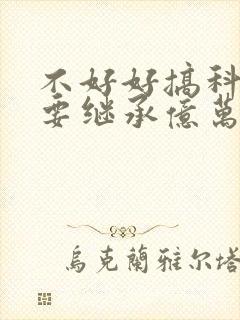 不好好搞科
要继承億萬
烏克蘭雅尔塔